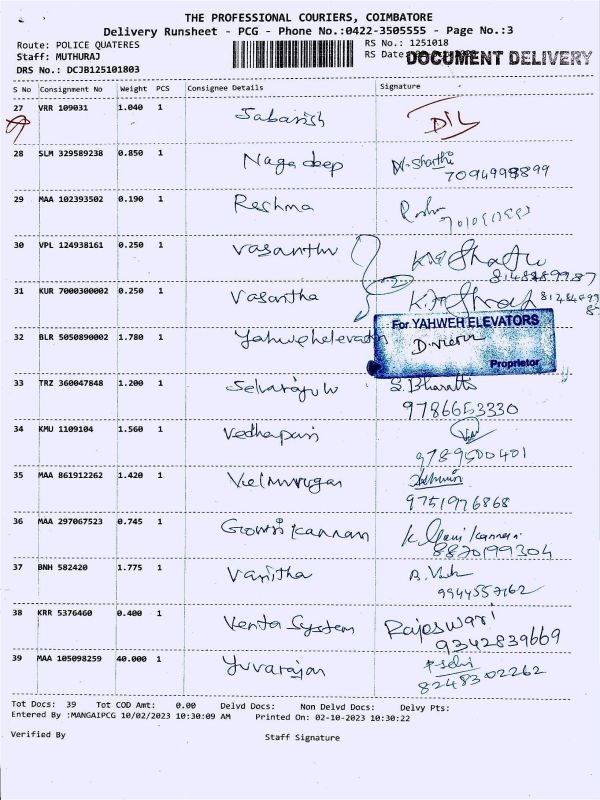 THE PROFESSIONAL COURIERS, COIMBATORE
Delivery Runsheet - PCG - Phone No.:0422-3505555 - Page No.:3
Route: POLICE QUATERES
RS No.: 1251018
Staff: MUTHURAJ
RS Date
DOCUMENT DELIVERY
DRS No.: DCJB125101803
S No Consignment No Weight PCS Consignee Details Signature
27 VRR 109031 1.040 1 Sabarish D/L
28 SLM 329589238 0.850 1 Nagadeep
29 MAA 102393502 0.190 1 Reshma
30 VPL 124938161 0.250 1 Vasantha
31 KUR 7000300002 0.250 1 Vasantha
For YAHWEH ELEVATORS
32 BLR 5050890002 1.780 1 Yahwehelevator
Proprietor
33 TRZ 360047848 1.200 1 Selvarajulu S. Bharathi
9786653330
34 KMU 1109104 1.560 1 Vedhapari
9789500401
35 MAA 861912262 1.420 1 Velmurugan
9751976868
36 MAA 297067523 0.745 1 Gowri Kannan K. Gowri Kannan
8870199304
37 BNH 582420 1.775 1 Vanitha
9944557162
38 KRR 5376460 0.400 1 Venta System Rajeswari
9342839669
39 MAA 105098259 40.000 1 Yuvarajan P. Selvi
8248302262
Tot Docs: 39 Tot COD Amt: 0.00 Delvd Docs: Non Delvd Docs: Delvy Pts:
Entered By :MANGAIPCG 10/02/2023 10:30:09 AM Printed On: 02-10-2023 10:30:22
Verified By Staff Signature